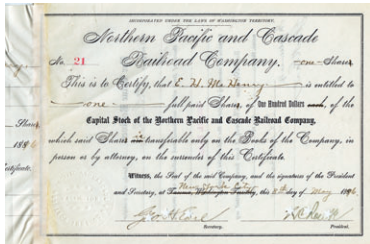 INCORPORATED UNDER THE LAWS OF WASHINGTON TERRITORY.
Northern Pacific and Cascade
No. 21 Railroad Company. one Shares
This is to Certify, that E. H. McHenry is entitled to
one full paid Shares, of One Hundred Dollars each, of the
Capital Stock of the Northern Pacific and Cascade Railroad Company,
which said Shares is transferable only on the Books of the Company, in
person or by attorney, on the surrender of this Certificate.
Witness, the Seal of the said Company, and the signatures of the President
and Secretary, at New York City this 8th day of May 1896
Secretary. President.
Shares
1896
Certificate.